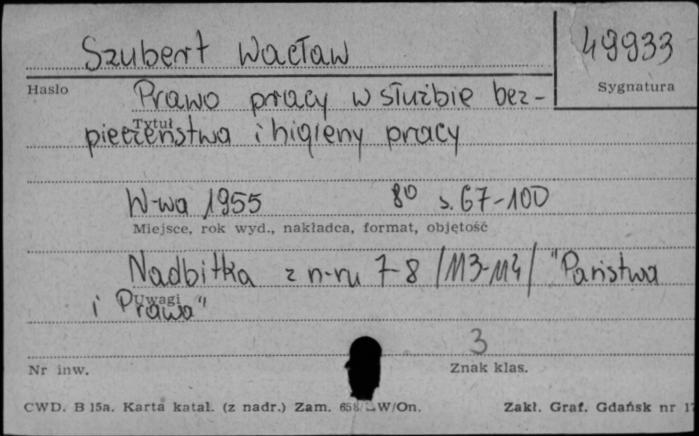 Szubert Wacław
49933
Hasło
Sygnatura
Prawo pracy w służbie bez-
Tytuł
pieczeństwa i higieny pracy
W-wa 1955 8⁰ s. 67-100
Miejsce, rok wyd., nakładca, format, objętość
Nadbitka z n-ru 7-8 /113-114/ "Państwa
Uwagi
i Prawa"
3
Nr inw.
Znak klas.
CWD. B 15a. Karta katal. (z nadr.) Zam. W/On.
Zakł. Graf. Gdańsk nr